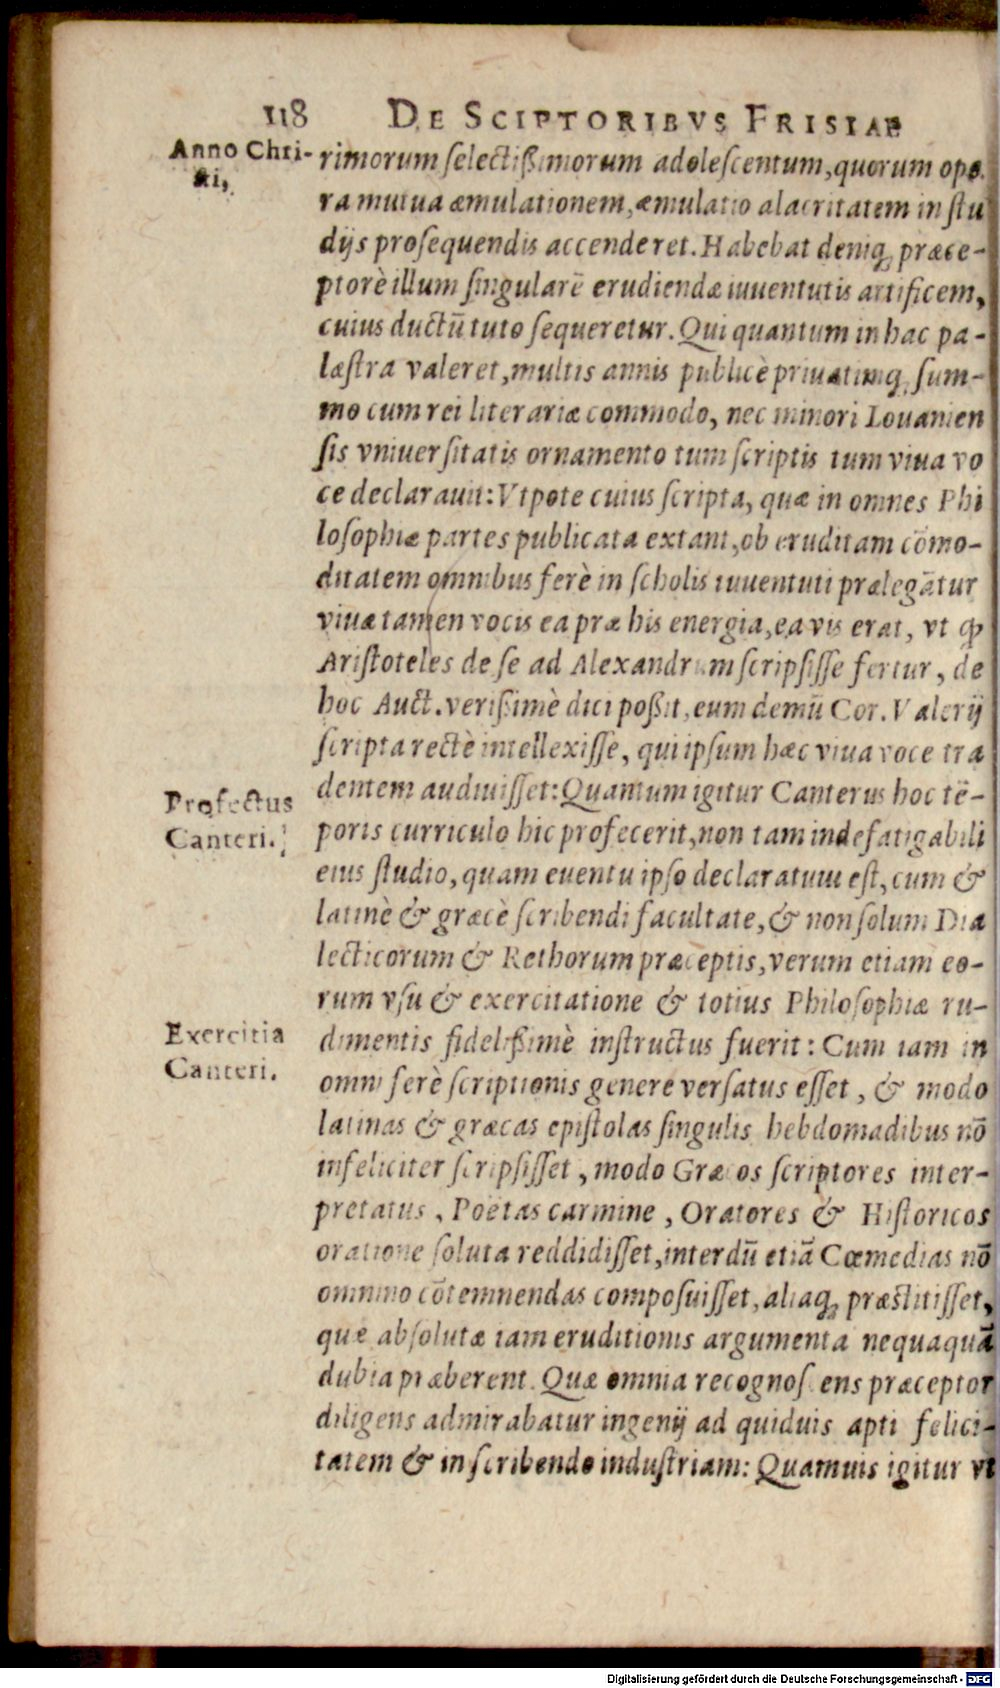 118 DE SCIPTORIBVS FRISIAE
Anno Chri-
sti,
rimorum selectißimorum adolescentum, quorum ope
ra mutua æmulationem, æmulatio alacritatem in stu
dijs prosequendis accenderet. Habebat deniq; præce-
ptorē illum singularē erudiendæ iuuentutis artificem,
cuius ductū tuto sequeretur. Qui quantum in hac pa-
læstra valeret, multis annis publicè priuatimq; sum-
mo cum rei literariæ commodo, nec minori Louanien
sis vniuersitatis ornamento tum scriptis tum viua vo
ce declarauit: Vtpote cuius scripta, quæ in omnes Phi
losophiæ partes publicata extant, ob eruditam cōmo-
ditatem omnibus ferè in scholis iuuentuti prælegātur
viuæ tamen vocis ea præ his energia, ea vis erat, vt ꝙ
Aristoteles de se ad Alexandrum scripsisse fertur, de
hoc Auct. verißimè dici poßit, eum demū Cor. Valerij
scripta rectè intellexisse, qui ipsum hæc viua voce tra
dentem audiuisset: Quantum igitur Canterus hoc tē-
Profectus
Canteri.
poris curriculo hic profecerit, non tam indefatigabili
eius studio, quam euentu ipso declaratum est, cum &
latinè & græcè scribendi facultate, & non solum Dia
lecticorum & Rethorum præceptis, verum etiam eo-
rum vsu & exercitatione & totius Philosophiæ ru-
Exercitia
Canteri.
dimentis fidelißimè instructus fuerit: Cum iam in
omni ferè scriptionis genere versatus esset, & modo
latinas & græcas epistolas singulis hebdomadibus nō
infeliciter scripsisset, modo Græcos scriptores inter-
pretatus, Poëtas carmine, Oratores & Historicos
oratione soluta reddidisset, interdū etiā Cœmedias nō
omnino cōtemnendas composuisset, aliaq; præstitisset,
quæ absolutæ iam eruditionis argumenta nequaquā
dubia præberent. Quæ omnia recognoscens præceptor
diligens admirabatur ingenij ad quiduis apti felici-
tatem & in scribendo industriam: Quamuis igitur vt
Digitalisierung gefördert durch die Deutsche Forschungsgemeinschaft - DFG